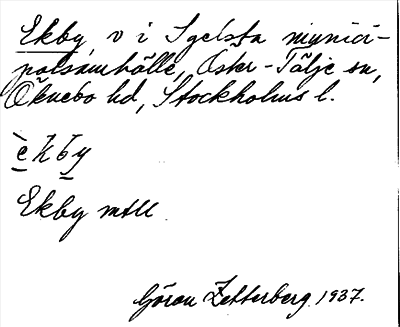 Ekby, v i Igelsta munici-
palsamhälle, Öster-Tälje sn,
Öknebo hd, Stockholms l.
è̠kb̳y
Ekby mtll.
Göran Zetterberg 1937.